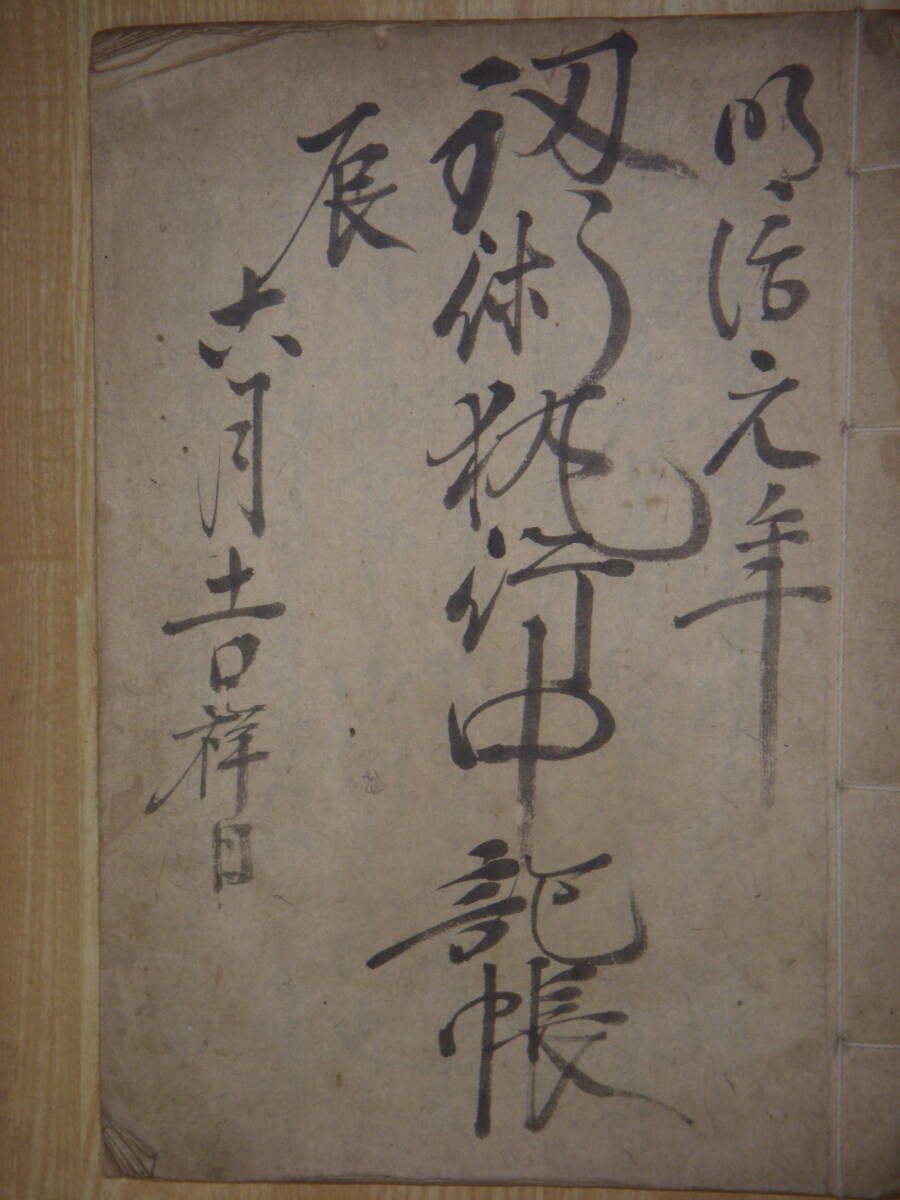 明治元年
釼術執行中記帳
辰六月吉祥日